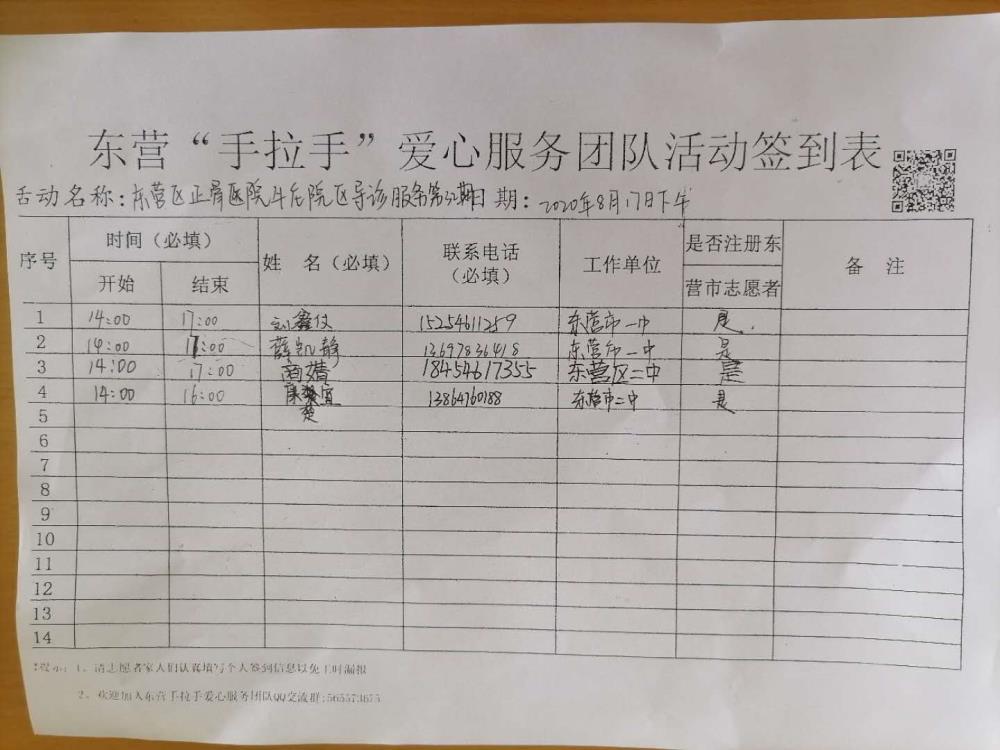 东营“手拉手”爱心服务团队活动签到表
活动名称：东营区正骨医院牛庄院区导诊服务 日期：2020年8月17日下午
序号 时间（必填） 姓 名（必填） 联系电话（必填） 工作单位 是否注册东营市志愿者 备 注
开始 结束
1 14:00 17:00 刘鑫仪 15254611259 东营市一中 是
2 14:00 17:00 薛凯静 13697836418 东营市一中 是
3 14:00 17:00 商婧 18454617355 东营区二中 是
4 14:00 16:00 13864760188 东营市二中 是
5
6
7
8
9
10
11
12
13
14
提示：1、请志愿者家人们认真填写个人签到信息以免工时漏报
2、欢迎加入东营手拉手爱心服务团队QQ交流群:565573875